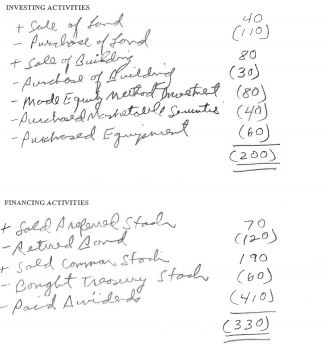 INVESTING ACTIVITIES
+ Sale of Land 40
- Purchase of Land (110)
+ Sale of Building 80
- Purchase of Building (30)
- Made Equity Method Investment (80)
- Purchased Marketable Securities (40)
- Purchased Equipment (60)
(200)
FINANCING ACTIVITIES
+ Sold Preferred Stock 70
- Retired Bond (120)
+ Sold Common Stock 190
- Bought Treasury Stock (60)
- Paid Dividends (410)
(330)